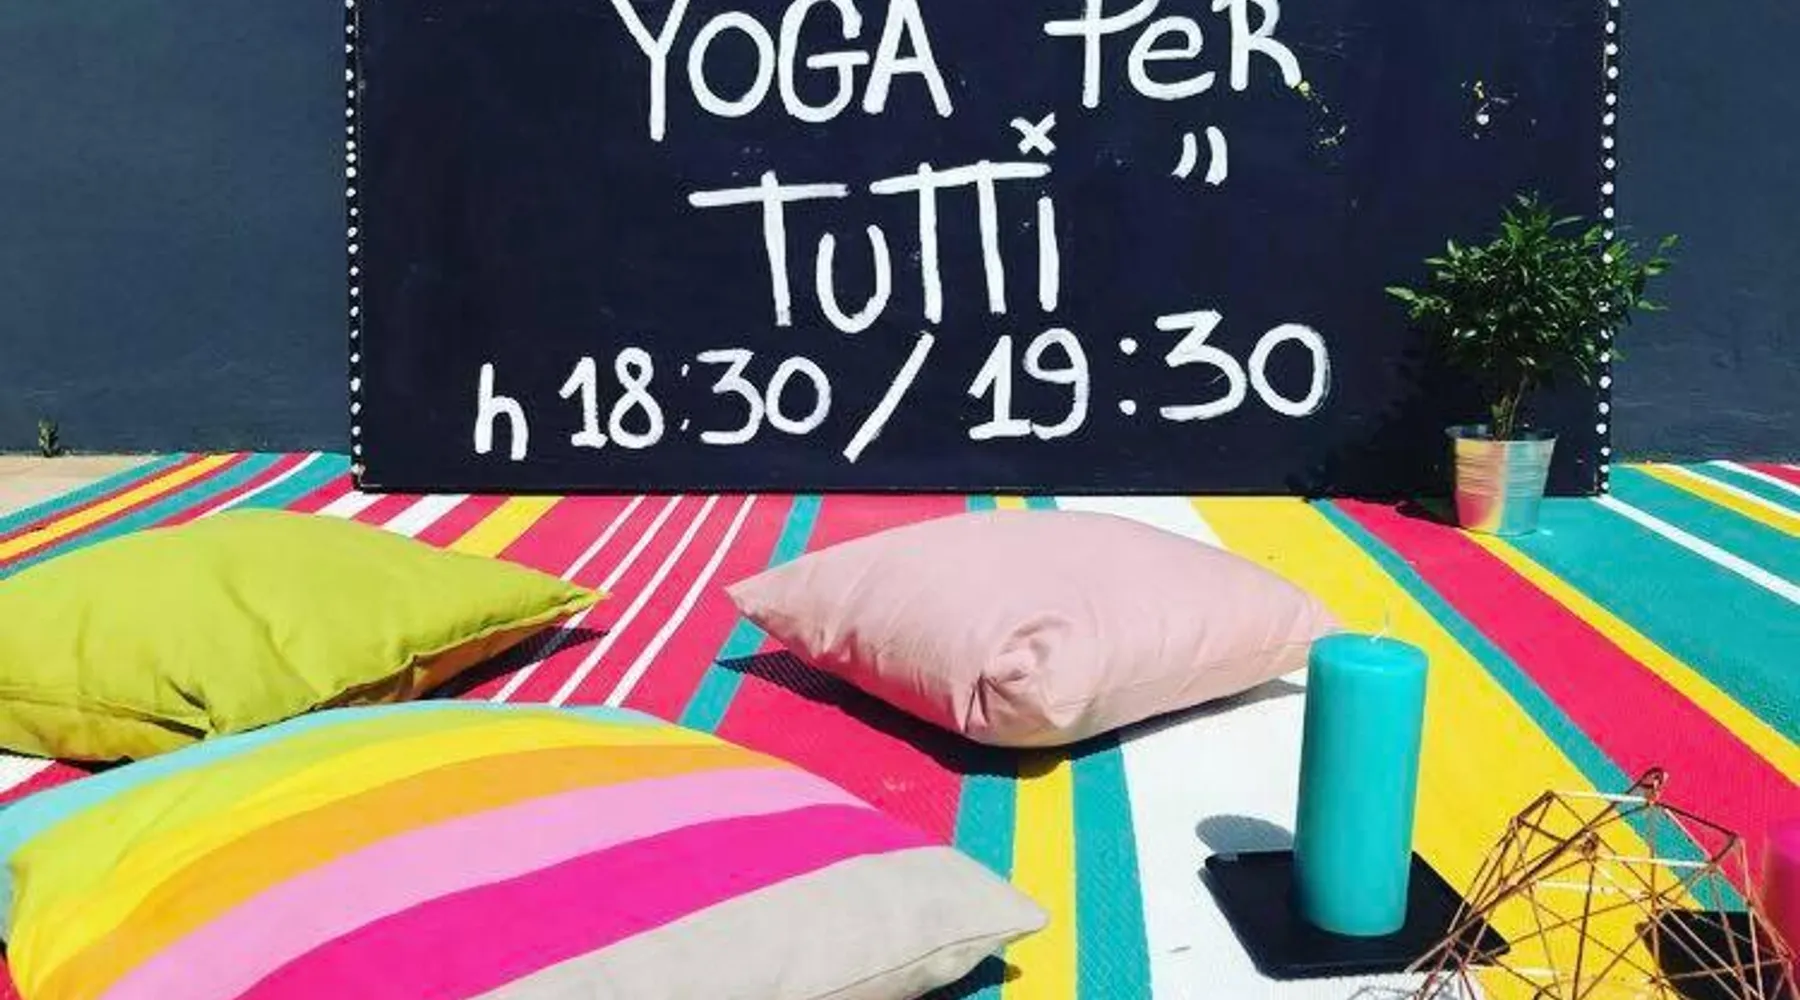 YOGA PER
TUTTI "
h 18:30/19:30